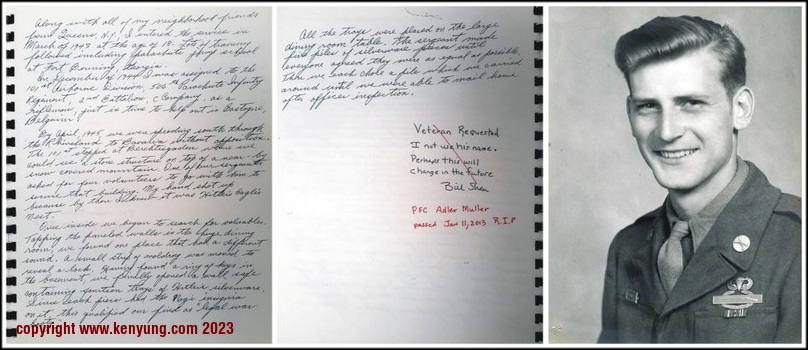 Along with all of my neighborhood friends
from Queens, N.Y., I entered the service in
March of 1943 at the age of 18. Lots of training
followed including Parachute Jump School
at Fort Benning, Georgia.
In December of 1944 I was assigned to the
101st Airborne Division, 506th Parachute Infantry
Regiment, 2nd Battalion, Company, as a
rifleman just in time to help out in Bastogne,
Belgium.
By April, 1945, we were speeding south through
the Rhineland to Bavaria without opposition.
The 101st stopped at Berchtesgaden where we
could see a stone structure on top of a near-by
snow covered mountain. One of our sergeants
asked for four volunteers to go with him to
secure that building. My hand shot up
because by then all knew it was Hitler's Eagle's
Nest.
Once inside we began to search for valuables.
Tapping the paneled walls in the huge dining
room, we found one place that had a different
sound. A small strip of molding was moved to
reveal a lock. Having found a ring of keys in
the basement, we finally opened a small safe
containing fourteen trays of Hitler's silverware.
Since each piece had the Nazi insignia
on it, this qualified our find as "legal war
copyright www.kenyung.com 2023
All the trays were placed on the large
dining room table. The sergeant made
five piles of silverware pieces until
everyone agreed they were as equal as possible.
Then we each chose a pile which we carried
around until we were able to mail home
after officer inspection.
Veteran Requested
I not use his name.
Perhaps this will
change in the future
Bill Shea
PFC Adler Muller
passed Jan 11, 2013 R.I.P